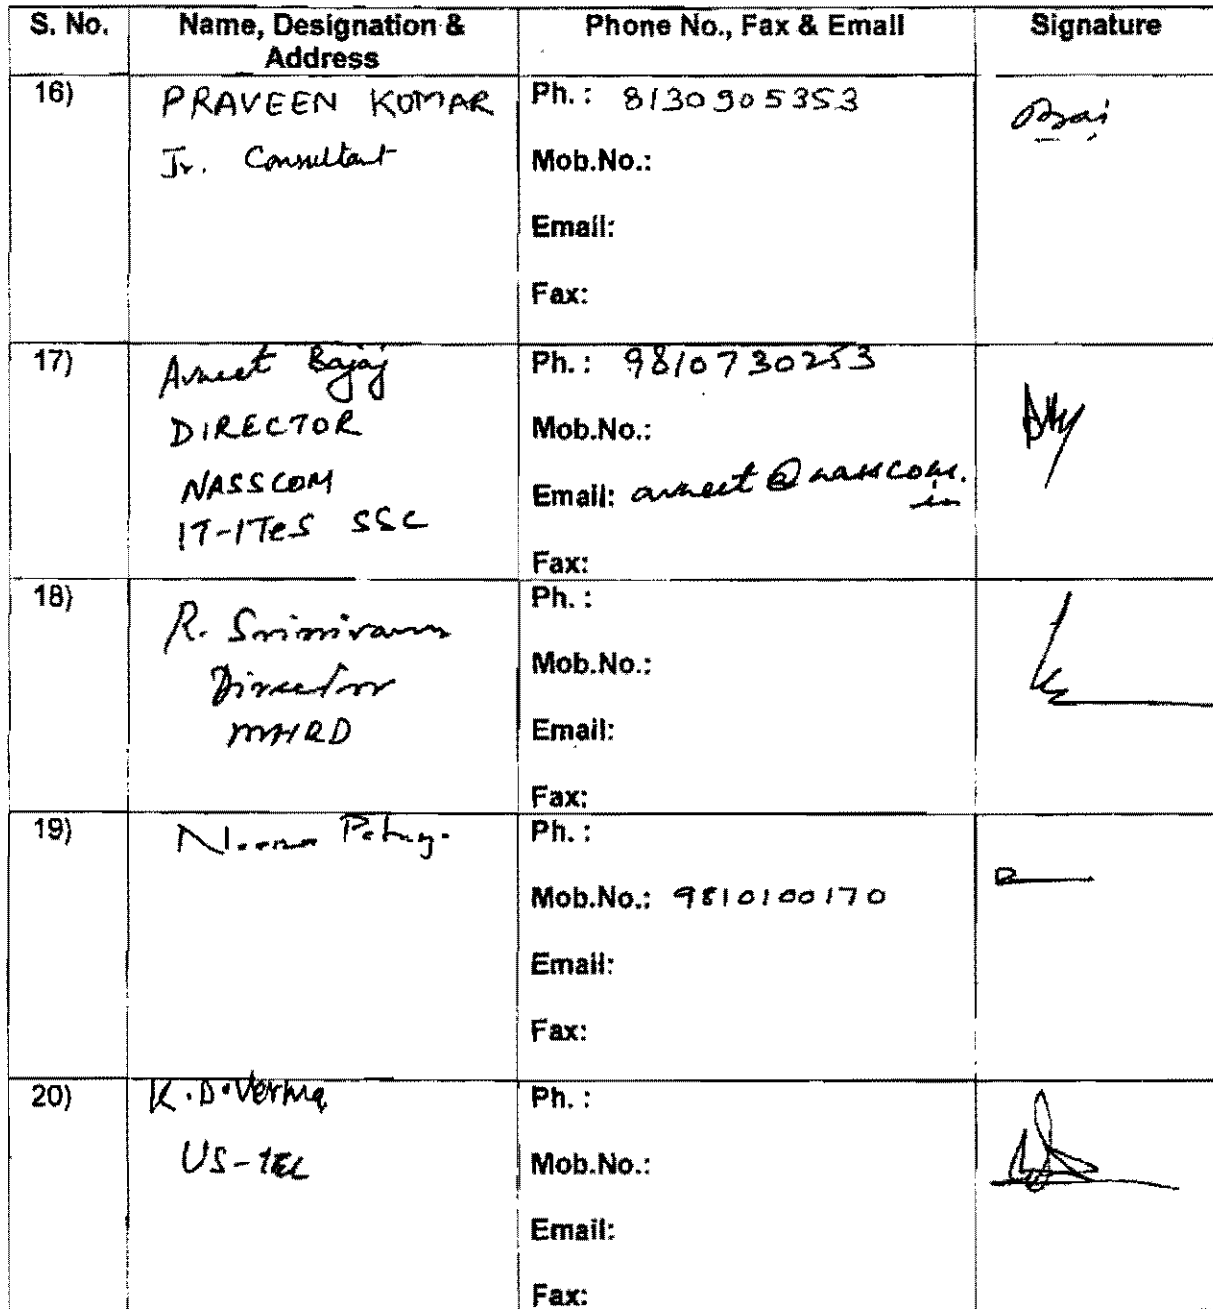 S. No.
Name, Designation &
Address
Phone No., Fax & Email
Signature
16)
PRAVEEN KUMAR
Jr. Consultant
Ph. : 8130905353
Mob.No.:
Email:
Fax:
17)
Avneet Bajaj
DIRECTOR
NASSCOM
IT-ITeS SSC
Ph. : 9810730253
Mob.No.:
Email: avneet@nasscom.
in
Fax:
18)
R. Srinivasan
Director
MHRD
Ph. :
Mob.No.:
Email:
Fax:
19)
Ph. :
Mob.No.: 9810100170
Email:
Fax:
20)
K.D.Verma
US-TEL
Ph. :
Mob.No.:
Email:
Fax: